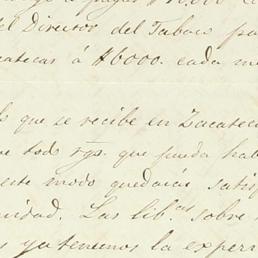 a pagar $10,000
el Director del Tabaco pa
catecas á $6000. cada me
que se recibe en Zacatec
e todo rgo. que pueda hab
este modo quedarás satisf
nidad. Las lib.as sobre
s ya tenemos la exper